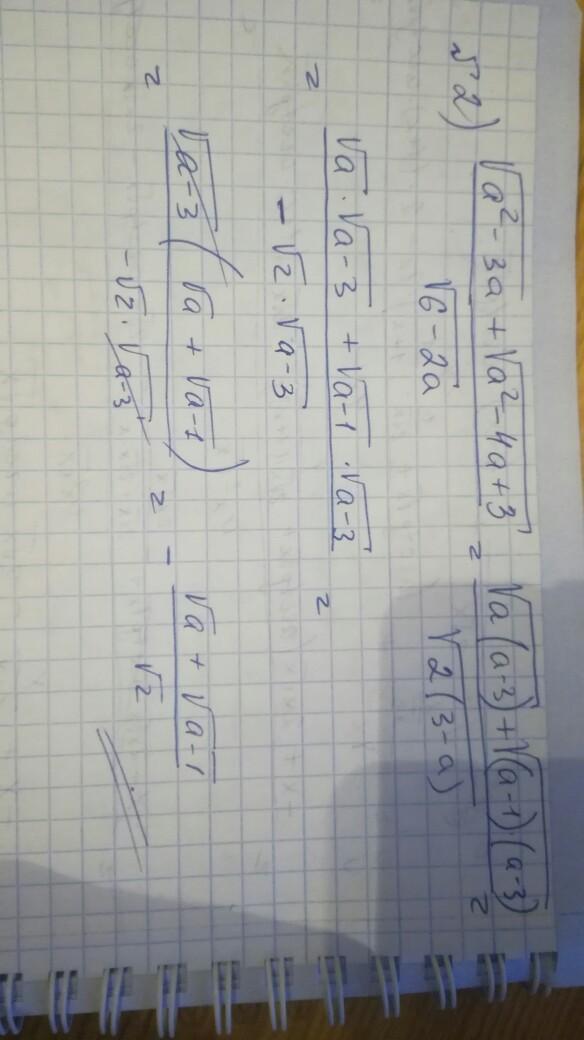 №2) \frac{\sqrt{a^2-3a}+\sqrt{a^2-4a+3}}{\sqrt{6-2a}} = \frac{\sqrt{a(a-3)}+\sqrt{(a-1)\cdot(a-3)}}{\sqrt{2(3-a)}} =
= \frac{\sqrt{a}\cdot\sqrt{a-3}+\sqrt{a-1}\cdot\sqrt{a-3}}{-\sqrt{2}\cdot\sqrt{a-3}} =
= \frac{\sqrt{a-3}(\sqrt{a}+\sqrt{a-1})}{-\sqrt{2}\cdot\sqrt{a-3}} = -\frac{\sqrt{a}+\sqrt{a-1}}{\sqrt{2}}